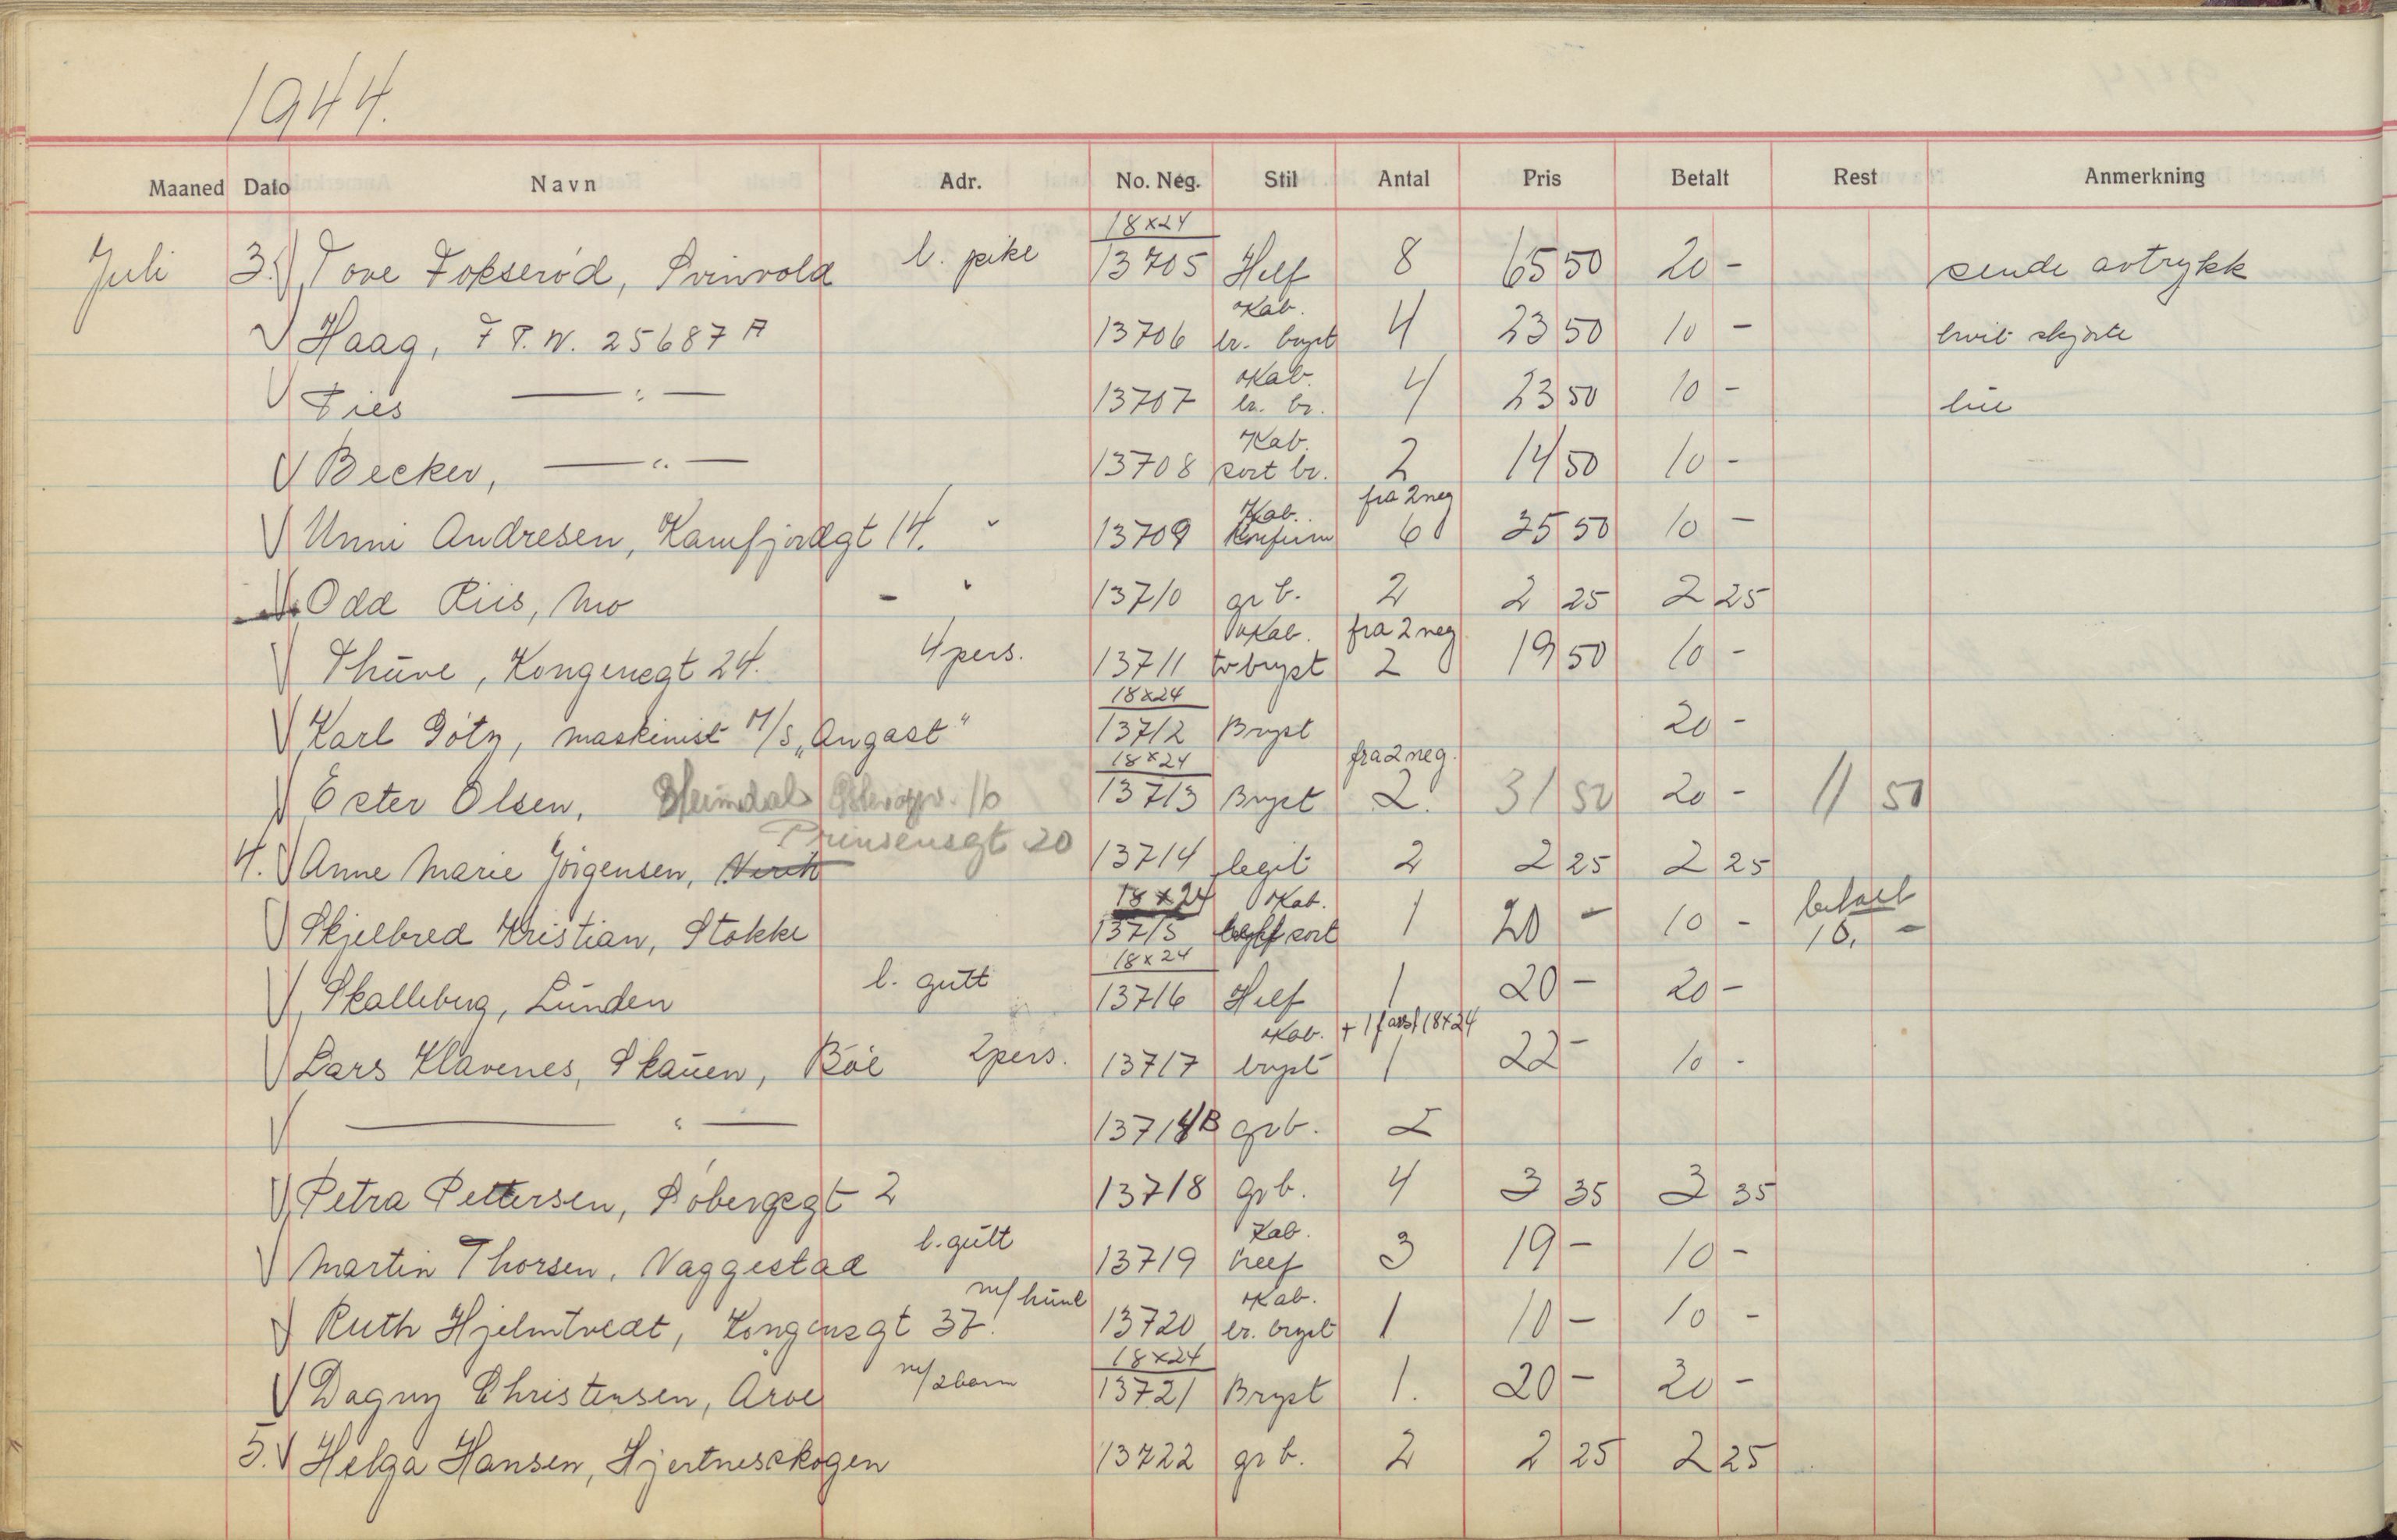 1944.
Maaned Dato Navn Adr. No. Neg. Stil Antal Pris Betalt Rest Anmerkning
18x24
Juli 3. Tove Fokserød, Svinvold l. pike 13705 Helf 8 65 50 20 - sende avtrykk
Kab.
Haag, F.P.N. 25687 A 13706 br. bryst 4 23 50 10 - hvit skjorte
Kab.
Fies —:— 13707 br. br. 4 23 50 10 - lue
Kab.
Becker, —:— 13708 sort br. 2 14 50 10 -
Kab. fra 2 neg
Unni Andresen, Kamfjordgt 14. " 13709 Konfirm 6 35 50 10 -
Odd Riis, Mo - " 13710 gr b. 2 2 25 2 25
Kab. fra 2 neg
Thuve, Kongensgt 24. 4 pers. 13711 br bryst 2 19 50 10 -
18x24
Karl Götz, maskinist M/S „Angast" 13712 Bryst 20 -
18x24 fra 2 neg.
Ester Olsen, Heimdal 13713 Bryst 2. 31 50 20 - 11 50
Prinsensgt 20
4. Anne Marie Jörgensen, 13714 legit 2 2 25 2 25
18x24 Kab. betalt
Skjelbred Kristian, Stokke 13715 sort 1 20 - 10 - 10. -
18x24
Skalleberg, Lunden l. gutt 13716 Helf 1 20 - 20 -
Kab. + 1 18x24
Lars Klavenes, Skauen, Böe 2 pers. 13717 bryst 1 22 - 10 -
—"— 13714B grb. 2
Petra Pettersen, Söbergsgt 2 13718 gr b. 4 3 35 3 35
Kab.
Martin Thorsen, Vaggestad l. gutt 13719 heef 3 19 - 10 -
m/hund Kab.
Ruth Hjelmtvedt, Kongensgt 37. 13720 br. bryst 1 10 - 10 -
18x24
Dagny Christensen, Aroe m/2 barn 13721 Bryst 1. 20 - 20 -
5. Helga Hansen, Hjertnesskogen 13722 gr b. 2 2 25 2 25